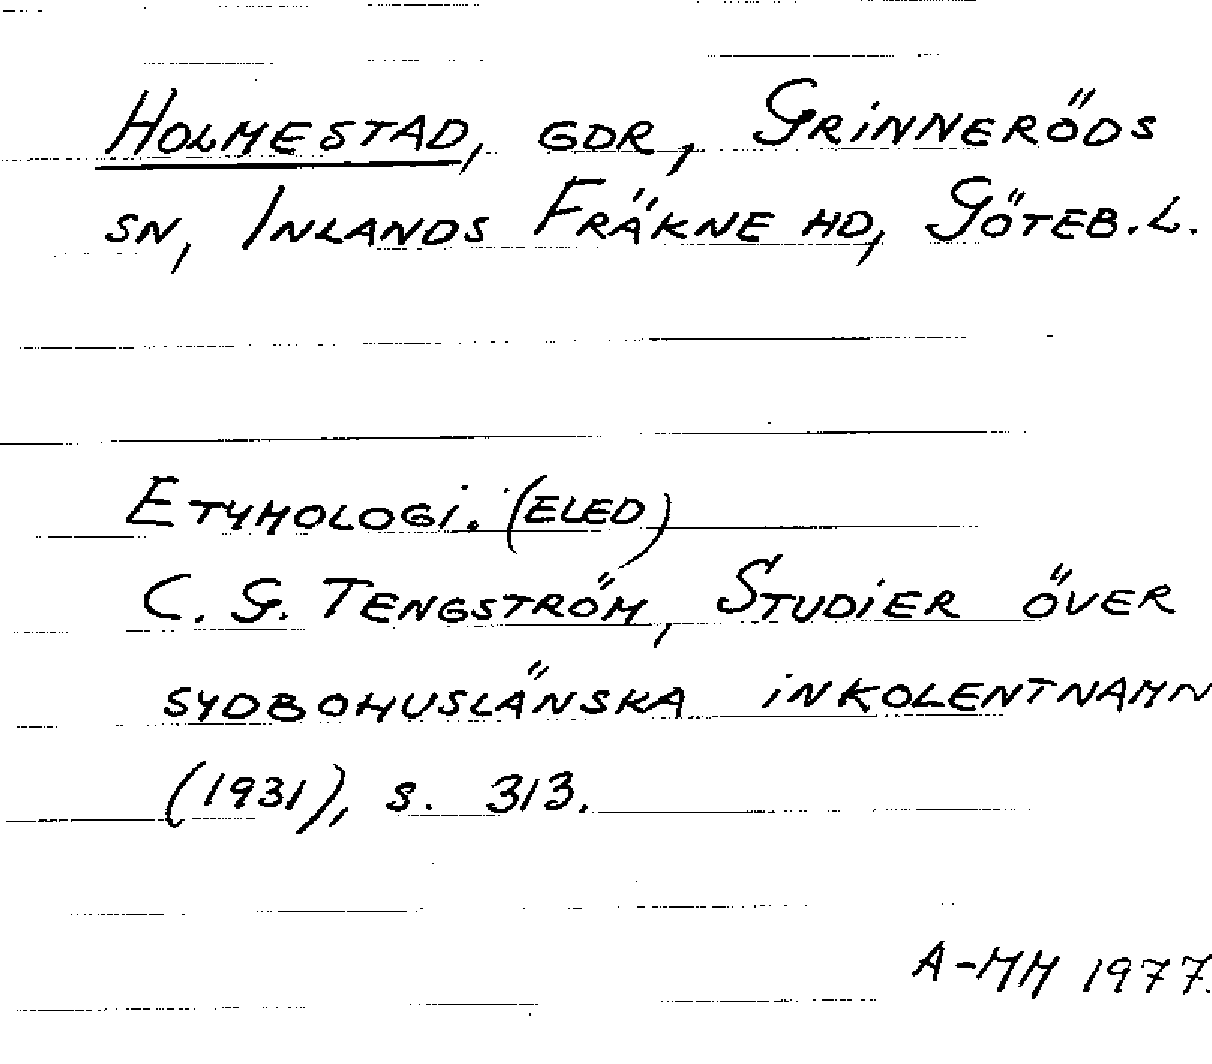 Holmestad, gdr, Grinneröds
sn, Inlands Fräkne hd, Göteb.l.
Etymologi. (eled)
C. G. Tengström, Studier över
sydbohuslänska inkolentnamn
(1931), s. 313.
A-MM 1977.